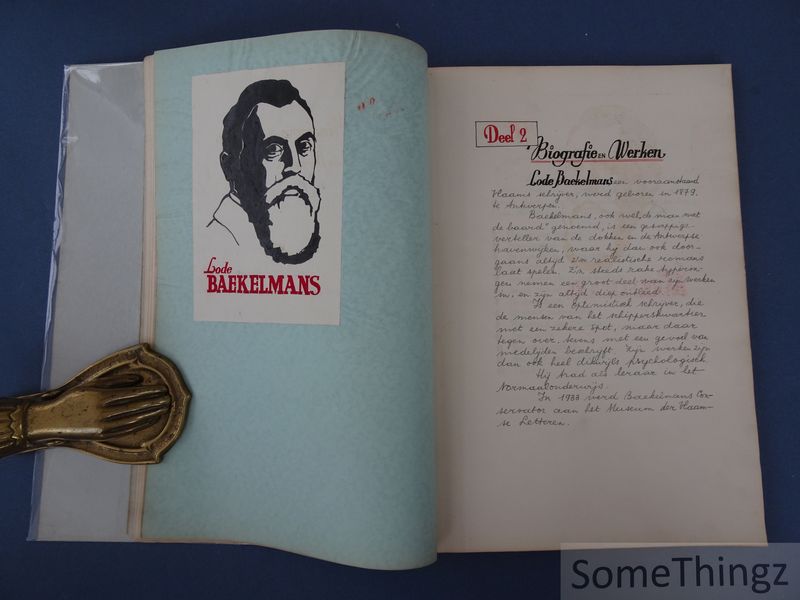 Lode
BAEKELMANS
Deel 2
Biografie EN Werken
Lode Baekelmans een vooraanstaand
Vlaams schrijver, werd geboren in 1879,
te Antwerpen.
Baekelmans, ook wel "de man met
de baard" genoemd, is een
verteller van de dokken en de Antwerpse
havenwijken, waar hij dan ook door-
gaans altijd Zijn realistische romans
laat spelen. Zijn steeds rake typerin-
gen nemen een groot deel van zijn werken
in, en zijn altijd diep ontleed.
Is een optimistisch schrijver, die
de mensen van het schipperskwartier
met een zekere spot, maar daar
tegen over, tevens met een gevoel van
medelijden beschrijft. Zijn werken zijn
dan ook heel dikwijls psychologisch.
Hij trad als leraar in het
Normaalonderwijs.
In 1933 werd Baekelmans Con-
servator aan het Museum der Vlaam-
se Letteren.
SomeThingz